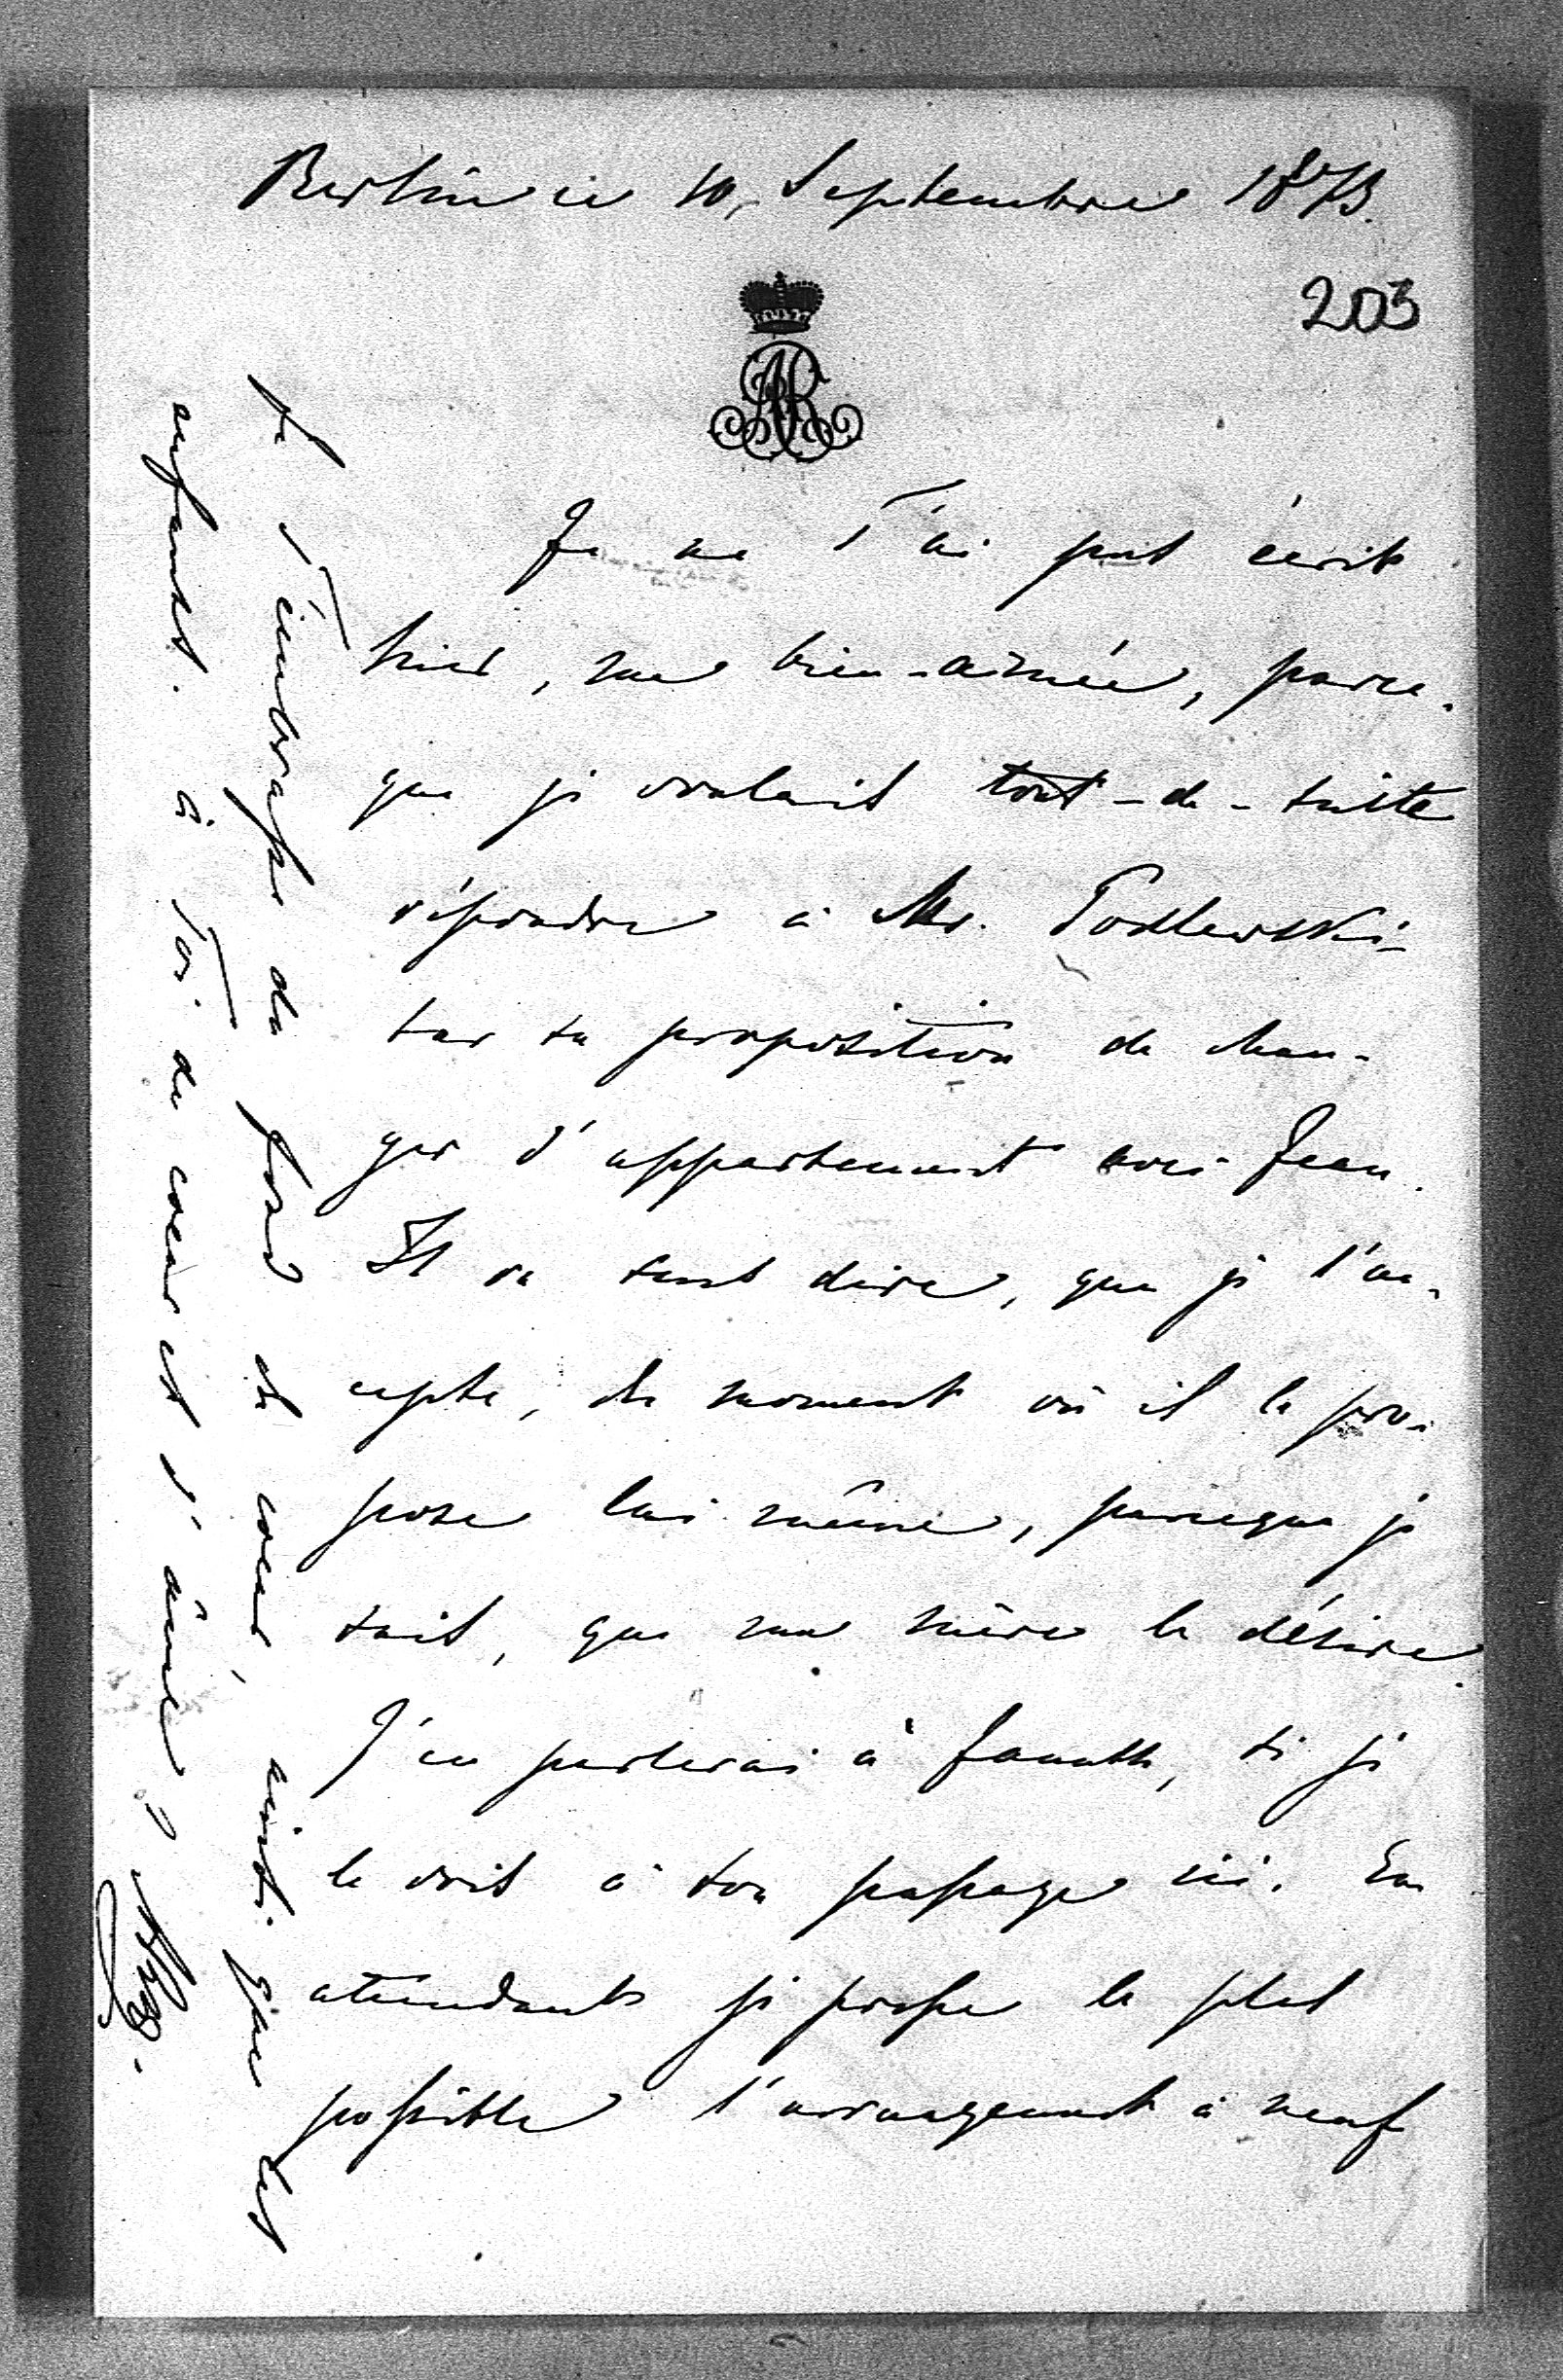 Berlin ce 10, Septembre 1873.
203
Je ne T'ai pas écrit
hier, ma bien-aimée, parce-
que je voulais tout-de-suite
répondre à Mr. Podlewski
sur sa proposition de chan-
ger d'appartement avec Jean.
Il va sans dire, que je l'ac-
cepte, du moment où il le pro-
pose lui même, parceque je
sais, que ma mère le désire.
J'en parlerai à si je
le vois à son passage ici. En
attendant je presse le plus
possible l'arrangement à neuf
Je T'embrasse du fond du coeur ainsi que les
enfants. à Toi de coeur et d'âme!